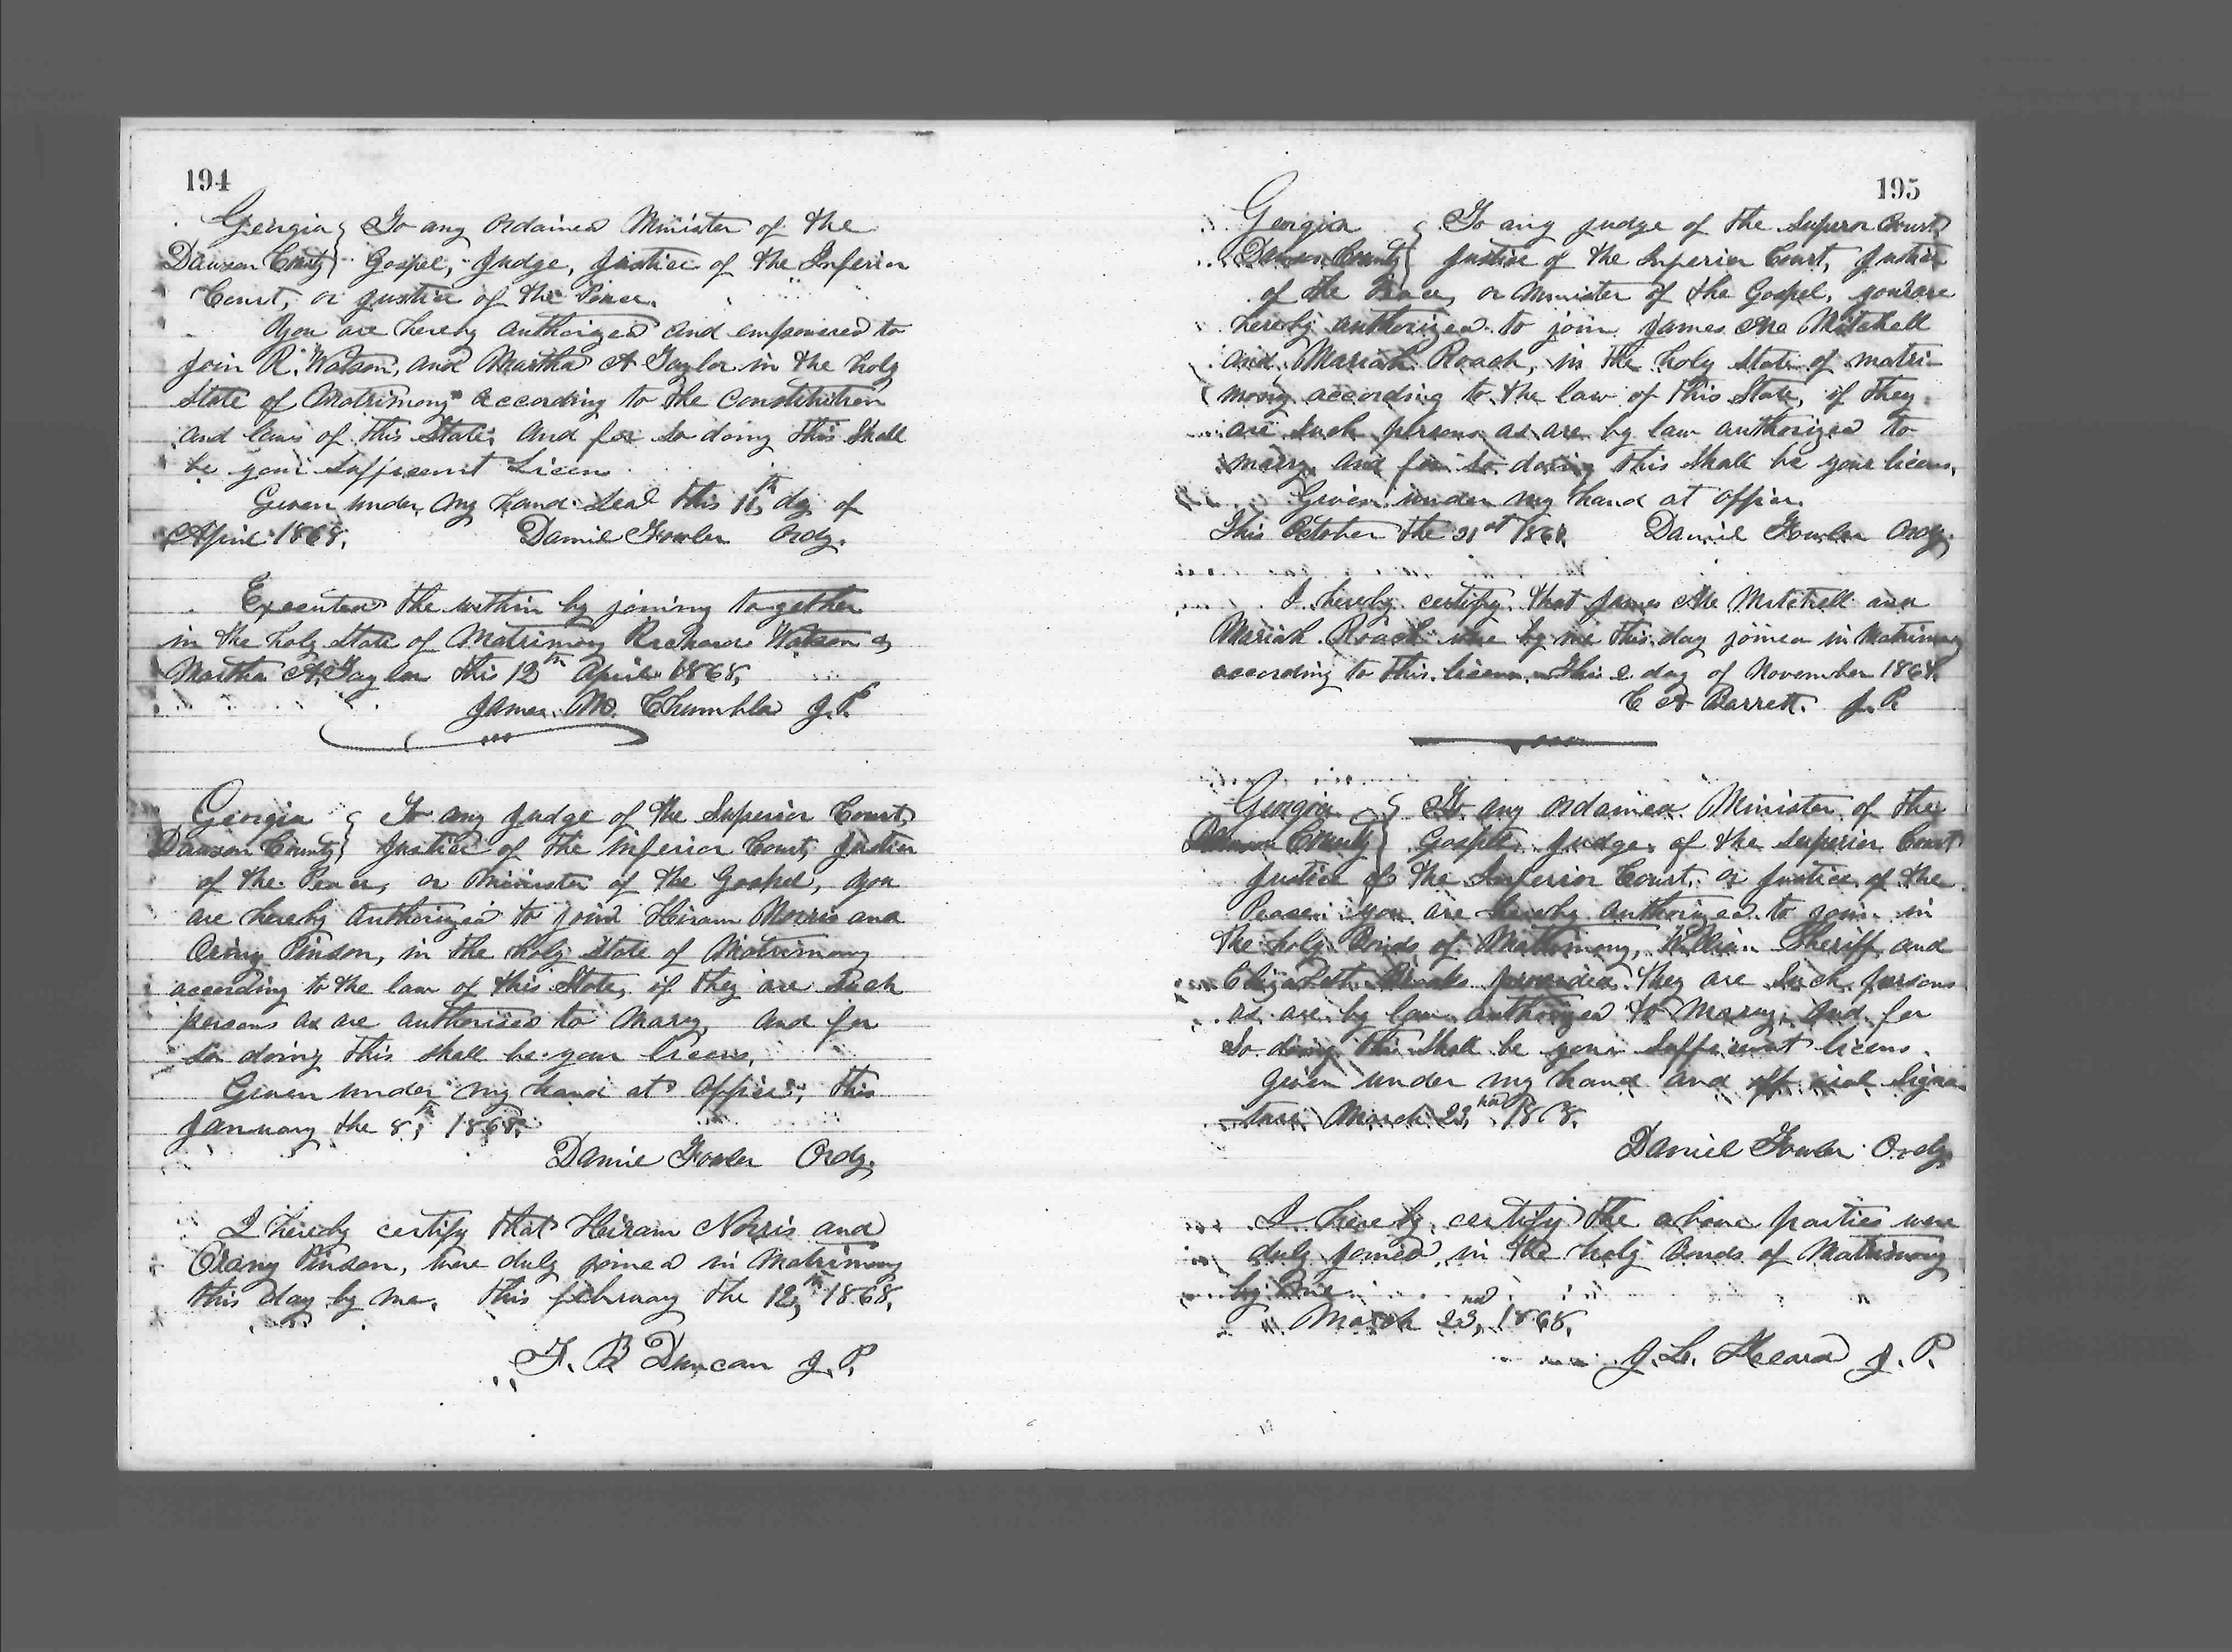 194
Georgia } To any ordained Minister of the
Dawson County } Gospel, Judge, Justice of the Inferior
Court, or Justice of the Peace.
You are hereby authorized and empowered to
join R. Watson, and Martha A Taylor in the holy
State of Matrimony according to the Constitution
and laws of this State, and for so doing this shall
be your sufficient Licens
Given under my hand seal this 11th, day of
April 1868. Daniel Fowler Ordy.
Executed the within by joining together
in the holy state of Matrimony Richard Watson &
Martha A. Taylor this 12th April 1868,
James M. Chumbla J.P.
Georgia } To any Judge of the Superior Court,
Dawson County } Justice of the inferior Court, Justice
of the Peace, or Minister of the Gospel, you
are hereby authorized to join Hiram Norris and
Pinson, in the holy state of Matrimony
according to the law of this State, if they are such
persons as are authorised to Mary, and for
so doing this shall be your licens,
Given under my hand at office, this
January the 8th, 1868.
Daniel Fowler Ordy,
I hereby certify that Hiram Norris and
Orany Pinson, were duly joined in Matrimony
this day by me, this february the 12th, 1868,
F. B Duncan J. P.
195
Georgia } To any judge of the Superor Court,
Dawson County } Justice of the Inferior Court, Justice
of the Peace, or Minister of the Gospel, you are
hereby authorized to join James Mc Mitchell
and Mariah Roach, in the holy state of matri-
mony according to the law of this State, if they
are such persons as are by law authorized to
marry, and for so doing this shall be your licens,
Given under my hand at office.
This October the 21st 1868. Daniel Fowler Ordy.
I hereby certify that James Mc Mitchell and
Mariah Roach were by me this day joined in Matrimony
according to this licens. This 2 day of November 1868.
C A Barrett. J.P
Georgia } To any ordained Minister of the
Dawson County } Gospel, Judge of the Superior Court
Justice of the Inferior Court, or Justice of the
Peace: you are hereby authorized to join in
the holy Bonds of Matrimony, William Sheriff and
Elizabeth provided they are such persons
as are by law authorized to Marry; and for
so doing this shall be your sufficient licens.
Given under my hand and official Signa-
ture March 23rd, 1868.
Daniel Fowler Ordy.
I hereby certify the above parties were
duly joined in the holy Bonds of Matrimony
by me
March 23rd, 1868,
J. L. Heard J. P.